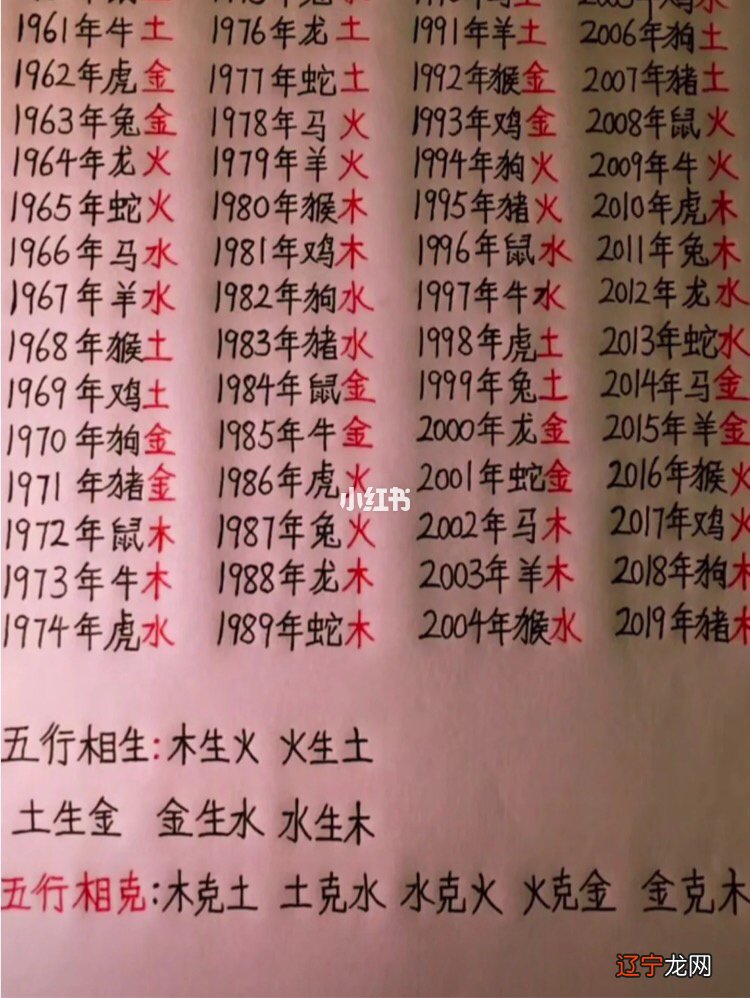 1961年牛土 1976年龙土 1991年羊土 2006年狗土
1962年虎金 1977年蛇土 1992年猴金 2007年猪土
1963年兔金 1978年马火 1993年鸡金 2008年鼠火
1964年龙火 1979年羊火 1994年狗火 2009年牛火
1965年蛇火 1980年猴木 1995年猪火 2010年虎木
1966年马水 1981年鸡木 1996年鼠水 2011年兔木
1967年羊水 1982年狗水 1997年牛水 2012年龙水
1968年猴土 1983年猪水 1998年虎土 2013年蛇水
1969年鸡土 1984年鼠金 1999年兔土 2014年马金
1970年狗金 1985年牛金 2000年龙金 2015年羊金
1971年猪金 1986年虎火 2001年蛇金 2016年猴火
小红书
1972年鼠木 1987年兔火 2002年马木 2017年鸡火
1973年牛木 1988年龙木 2003年羊木 2018年狗木
1974年虎水 1989年蛇木 2004年猴水 2019年猪木
五行相生:木生火 火生土
土生金 金生水 水生木
五行相克:木克土 土克水 水克火 火克金 金克木
辽宁龙网